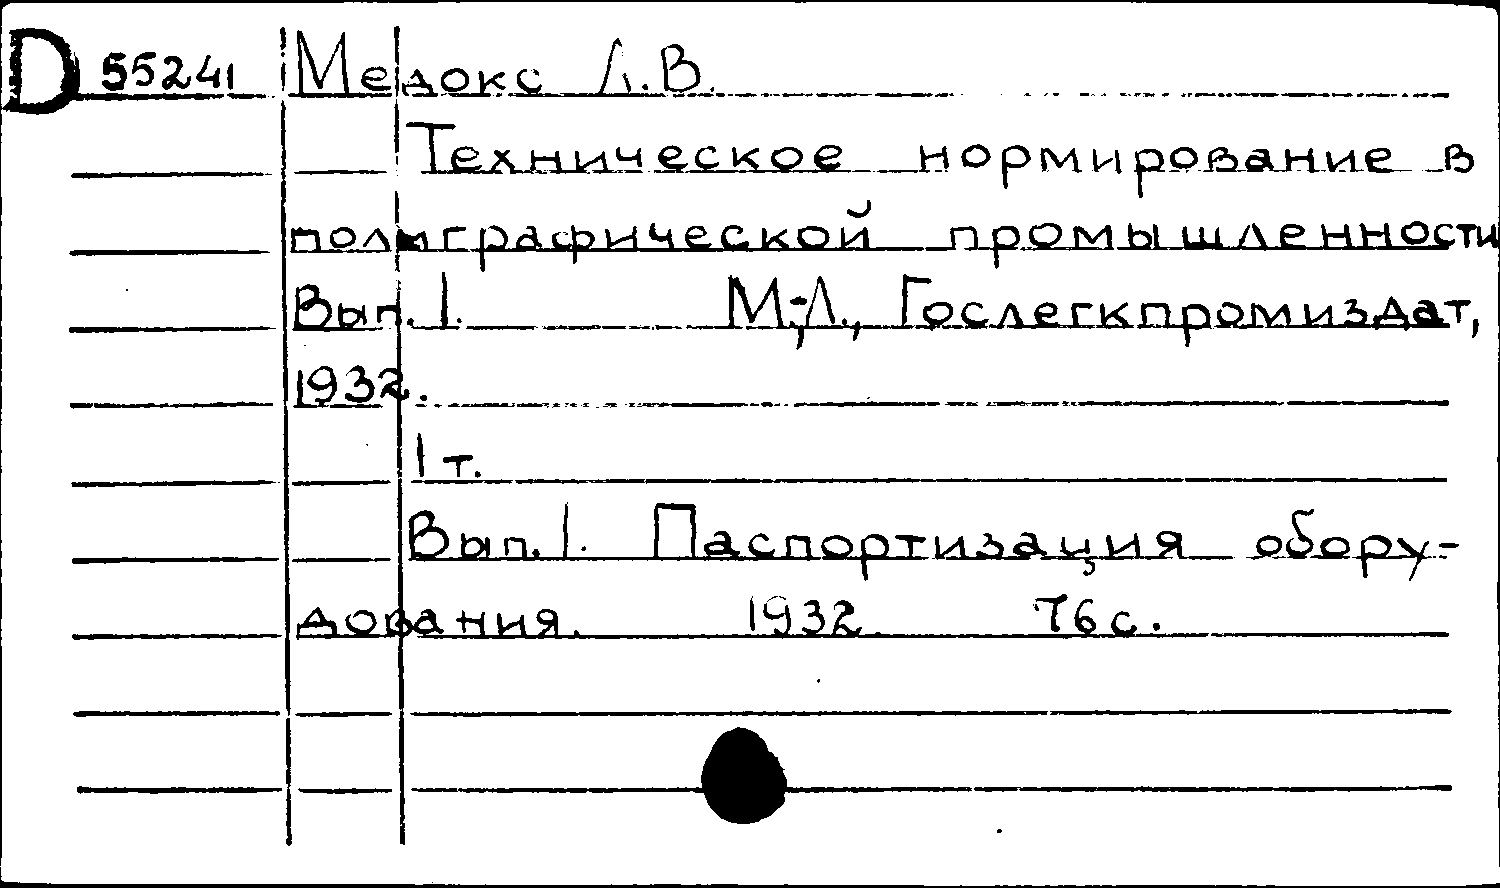 D 55241 Медокс Л.В.
Техническое нормирование в
полиграфической промышленности
Вып. 1. М.-Л., Гослегкпромиздат,
1932.
1 т.
Вып. 1. Паспортизация обору-
дования. 1932. 76 с.